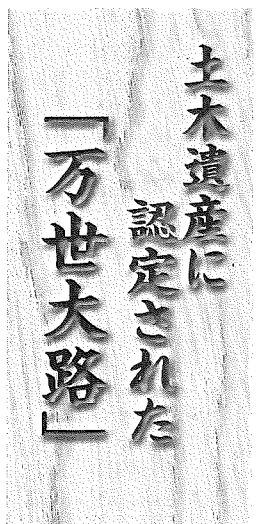 土木遺産に
認定された
「万世大路」